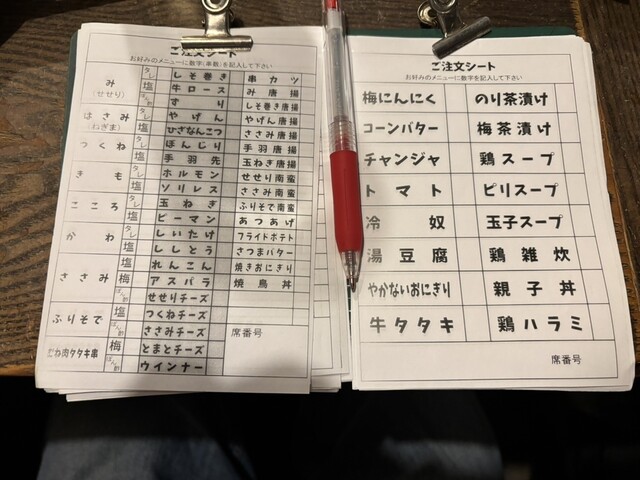 ご注文シート
お好みのメニューに数字(串数)を記入して下さい
み
(せせり)
タレ
塩
はさみ
(ねぎま)
タレ
塩
つくね
タレ
塩
きも
タレ
塩
こころ
タレ
塩
かわ
タレ
塩
ささみ
梅
ふりそで
塩
むね肉タタキ串
梅
しそ巻き
牛ロース
ずり
やげん
ひざなんこつ
ぼんじり
手羽先
ホルモン
ソリレス
玉ねぎ
ピーマン
しいたけ
ししとう
れんこん
アスパラ
せせりチーズ
つくねチーズ
ささみチーズ
とまとチーズ
ウインナー
串カツ
み唐揚
しそ巻唐揚
やげん唐揚
ささみ唐揚
手羽唐揚
玉ねぎ唐揚
せせり南蛮
ささみ南蛮
ふりそで南蛮
あつあげ
フライドポテト
さつまバター
焼きおにぎり
焼鳥丼
席番号
ご注文シート
お好みのメニューに数字を記入して下さい
梅にんにく のり茶漬け
コーンバター 梅茶漬け
チャンジャ 鶏スープ
トマト ピリスープ
冷奴 玉子スープ
湯豆腐 鶏雑炊
やかないおにぎり 親子丼
牛タタキ 鶏ハラミ
席番号